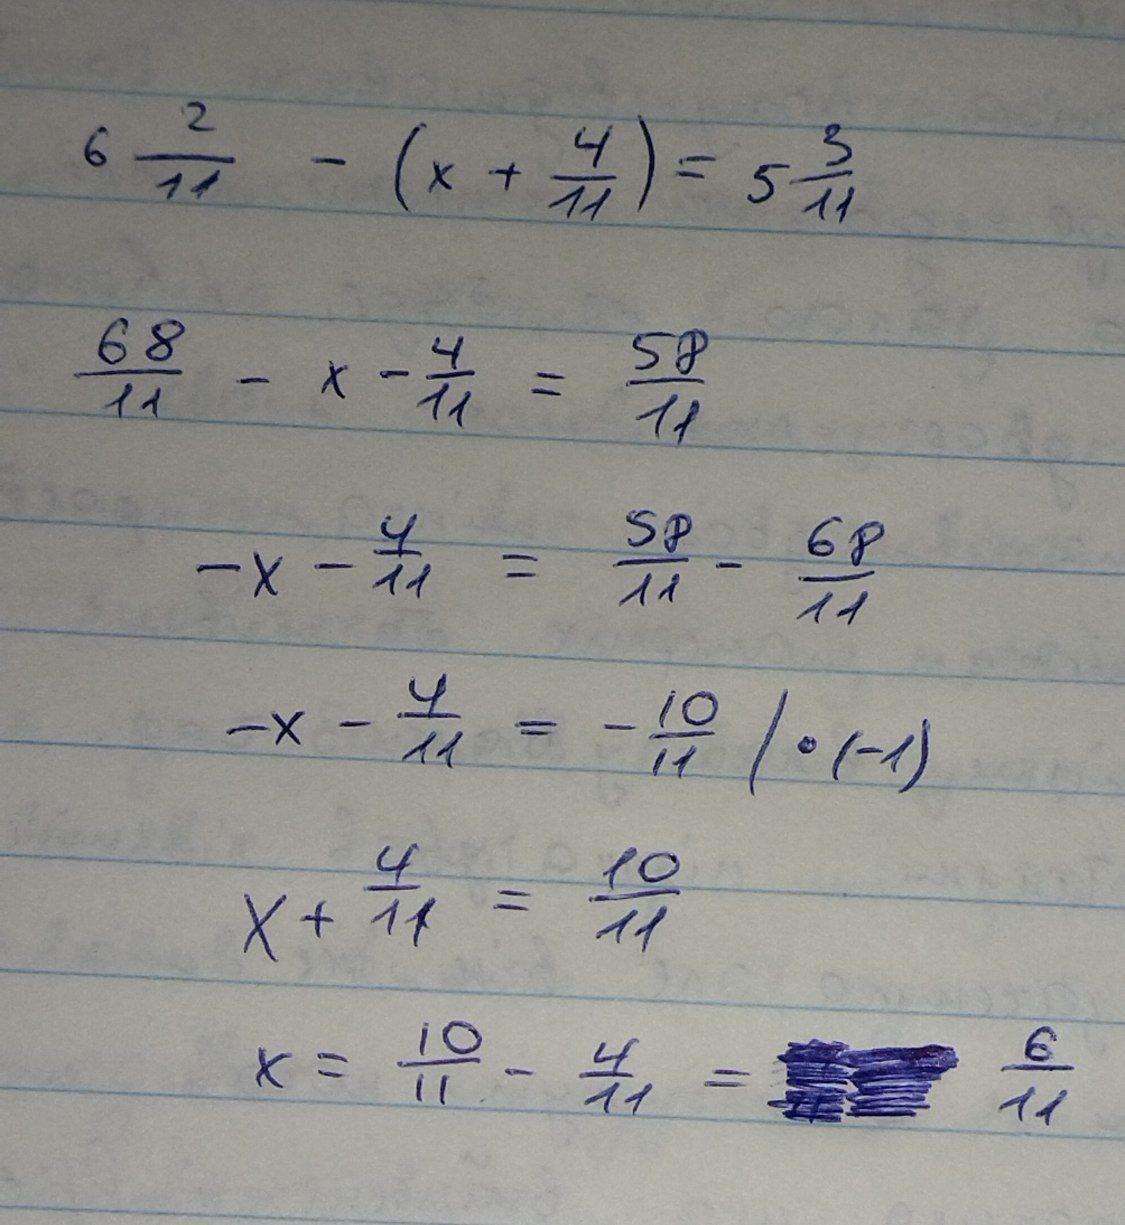 6 2/11 - (x + 4/11) = 5 3/11
68/11 - x - 4/11 = 58/11
-x - 4/11 = 58/11 - 68/11
-x - 4/11 = -10/11 / • (-1)
x + 4/11 = 10/11
x = 10/11 - 4/11 = 6/11